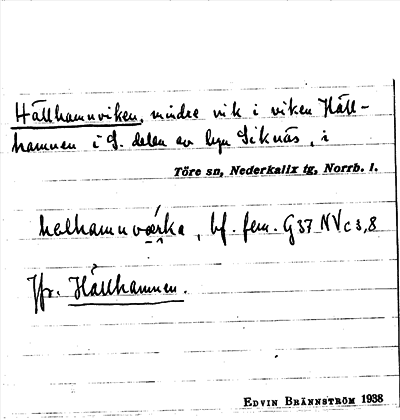 Hällhamnviken, mindre vik i viken Häll-
hamnen i S. delen av byn Siknäs, i
Töre sn, Nederkalix tg, Norrb. l.
helhamnværka, bf. fem. G37 NV c 3,8
Jfr. Hällhamnen.
EDVIN BRÄNNSTRÖM 1938